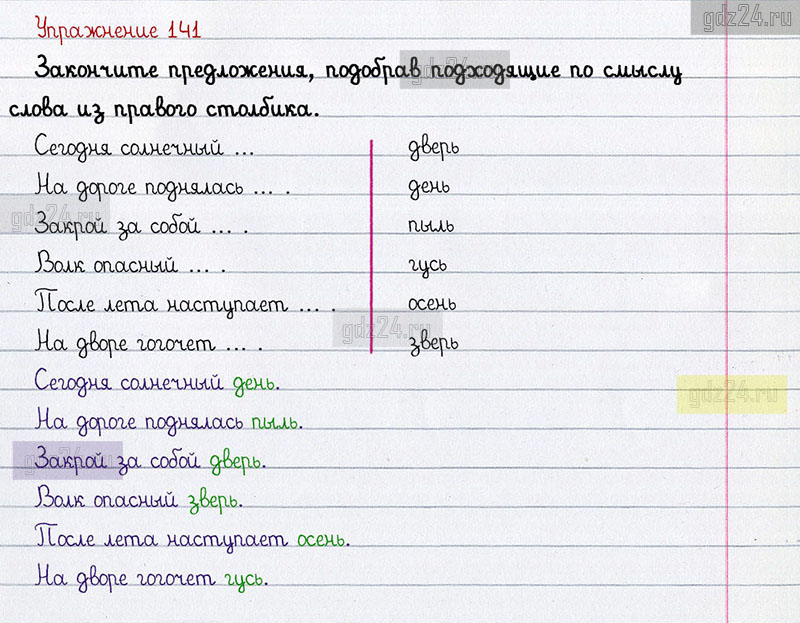 gdz24.ru
Упражнение 141
Закончите предложения, подобрав подходящие по смыслу
gdz24.ru
слова из правого столбика.
Сегодня солнечный ... дверь
На дороге поднялась ... . день
gdz24.ru
Закрой за собой ... . пыль
Волк опасный ... . гусь
После лета наступает ... . осень
gdz24.ru
На дворе гогочет ... . зверь
Сегодня солнечный день.
gdz24.ru
На дороге поднялась пыль.
Закрой за собой дверь.
gdz24.ru
Волк опасный зверь.
После лета наступает осень.
На дворе гогочет гусь.